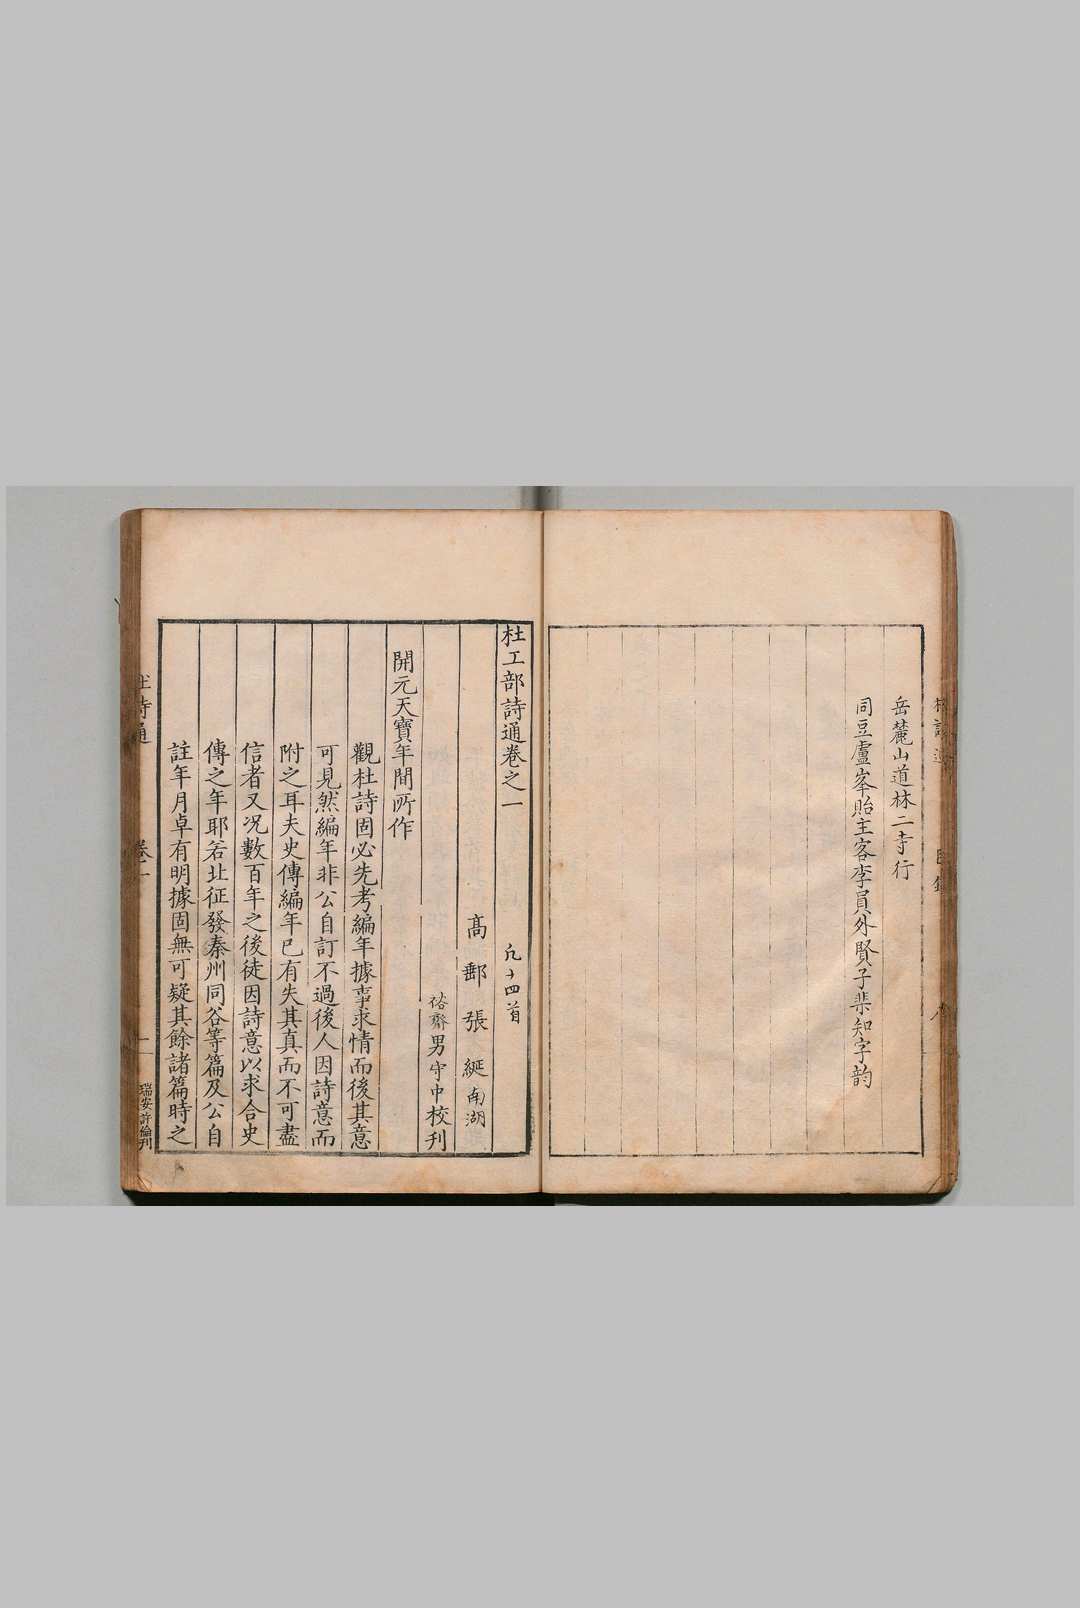 岳麓山道林二寺行
同豆盧峯貽主客李員外賢子棐知字韵
杜工部詩通卷之一
凡十四首
高郵張綖南湖
裕齋男守中校刊
開元天寶年間所作
觀杜詩固必先考編年據事求情而後其意
可見然編年非公自訂不過後人因詩意而
附之耳夫史傳編年已有失其真而不可盡
信者又况數百年之後徒因詩意以求合史
傳之年耶若北征發秦州同谷等篇及公自
註年月卓有明據固無可疑其餘諸篇時之
卷一
瑞安許倫刊